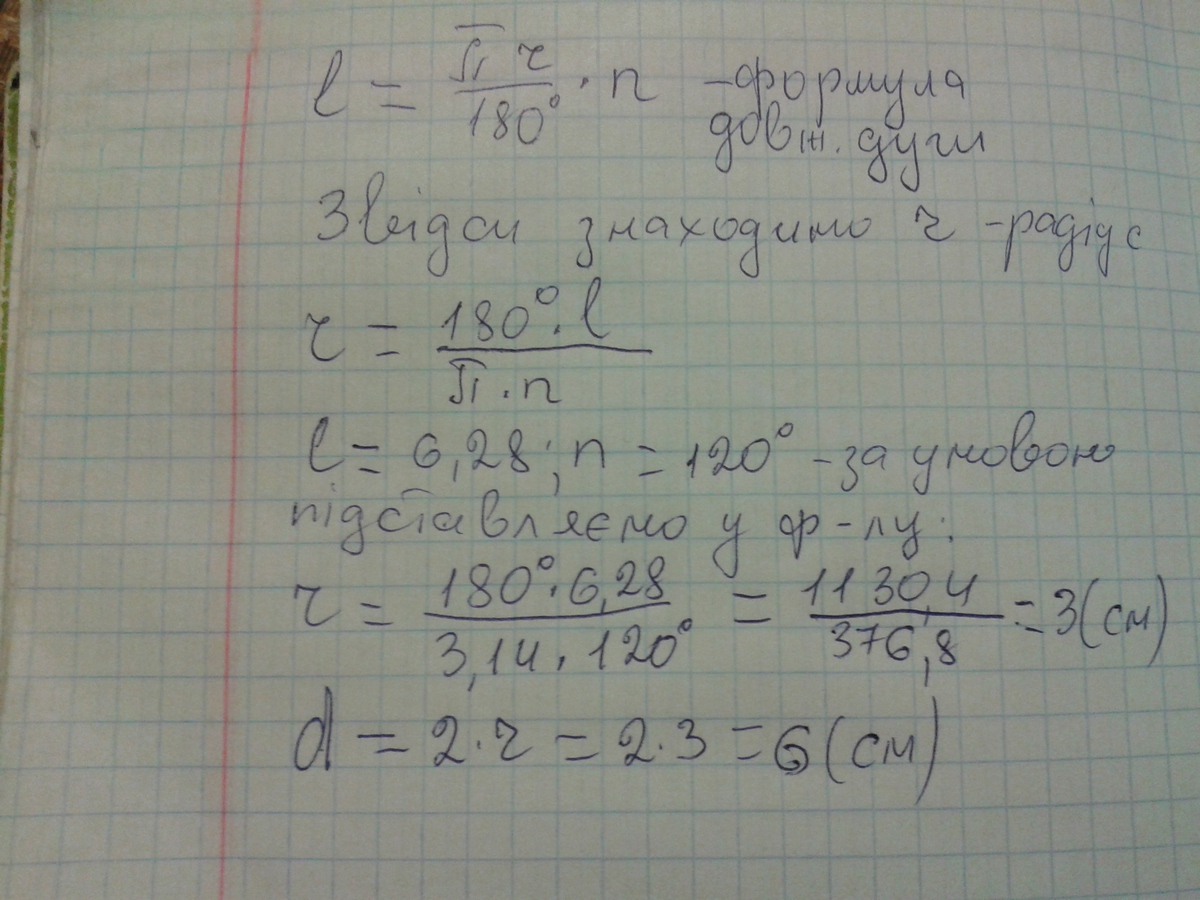 l = πr/180° · n – формула
довж. дуги
Звідси знаходимо r – радіус
r = 180°·l/π·n
l = 6,28; n = 120° – за умовою
підставляємо у ф-лу:
r = 180°·6,28/3,14·120° = 1130,4/376,8 = 3(см)
d = 2·r = 2·3 = 6(см)